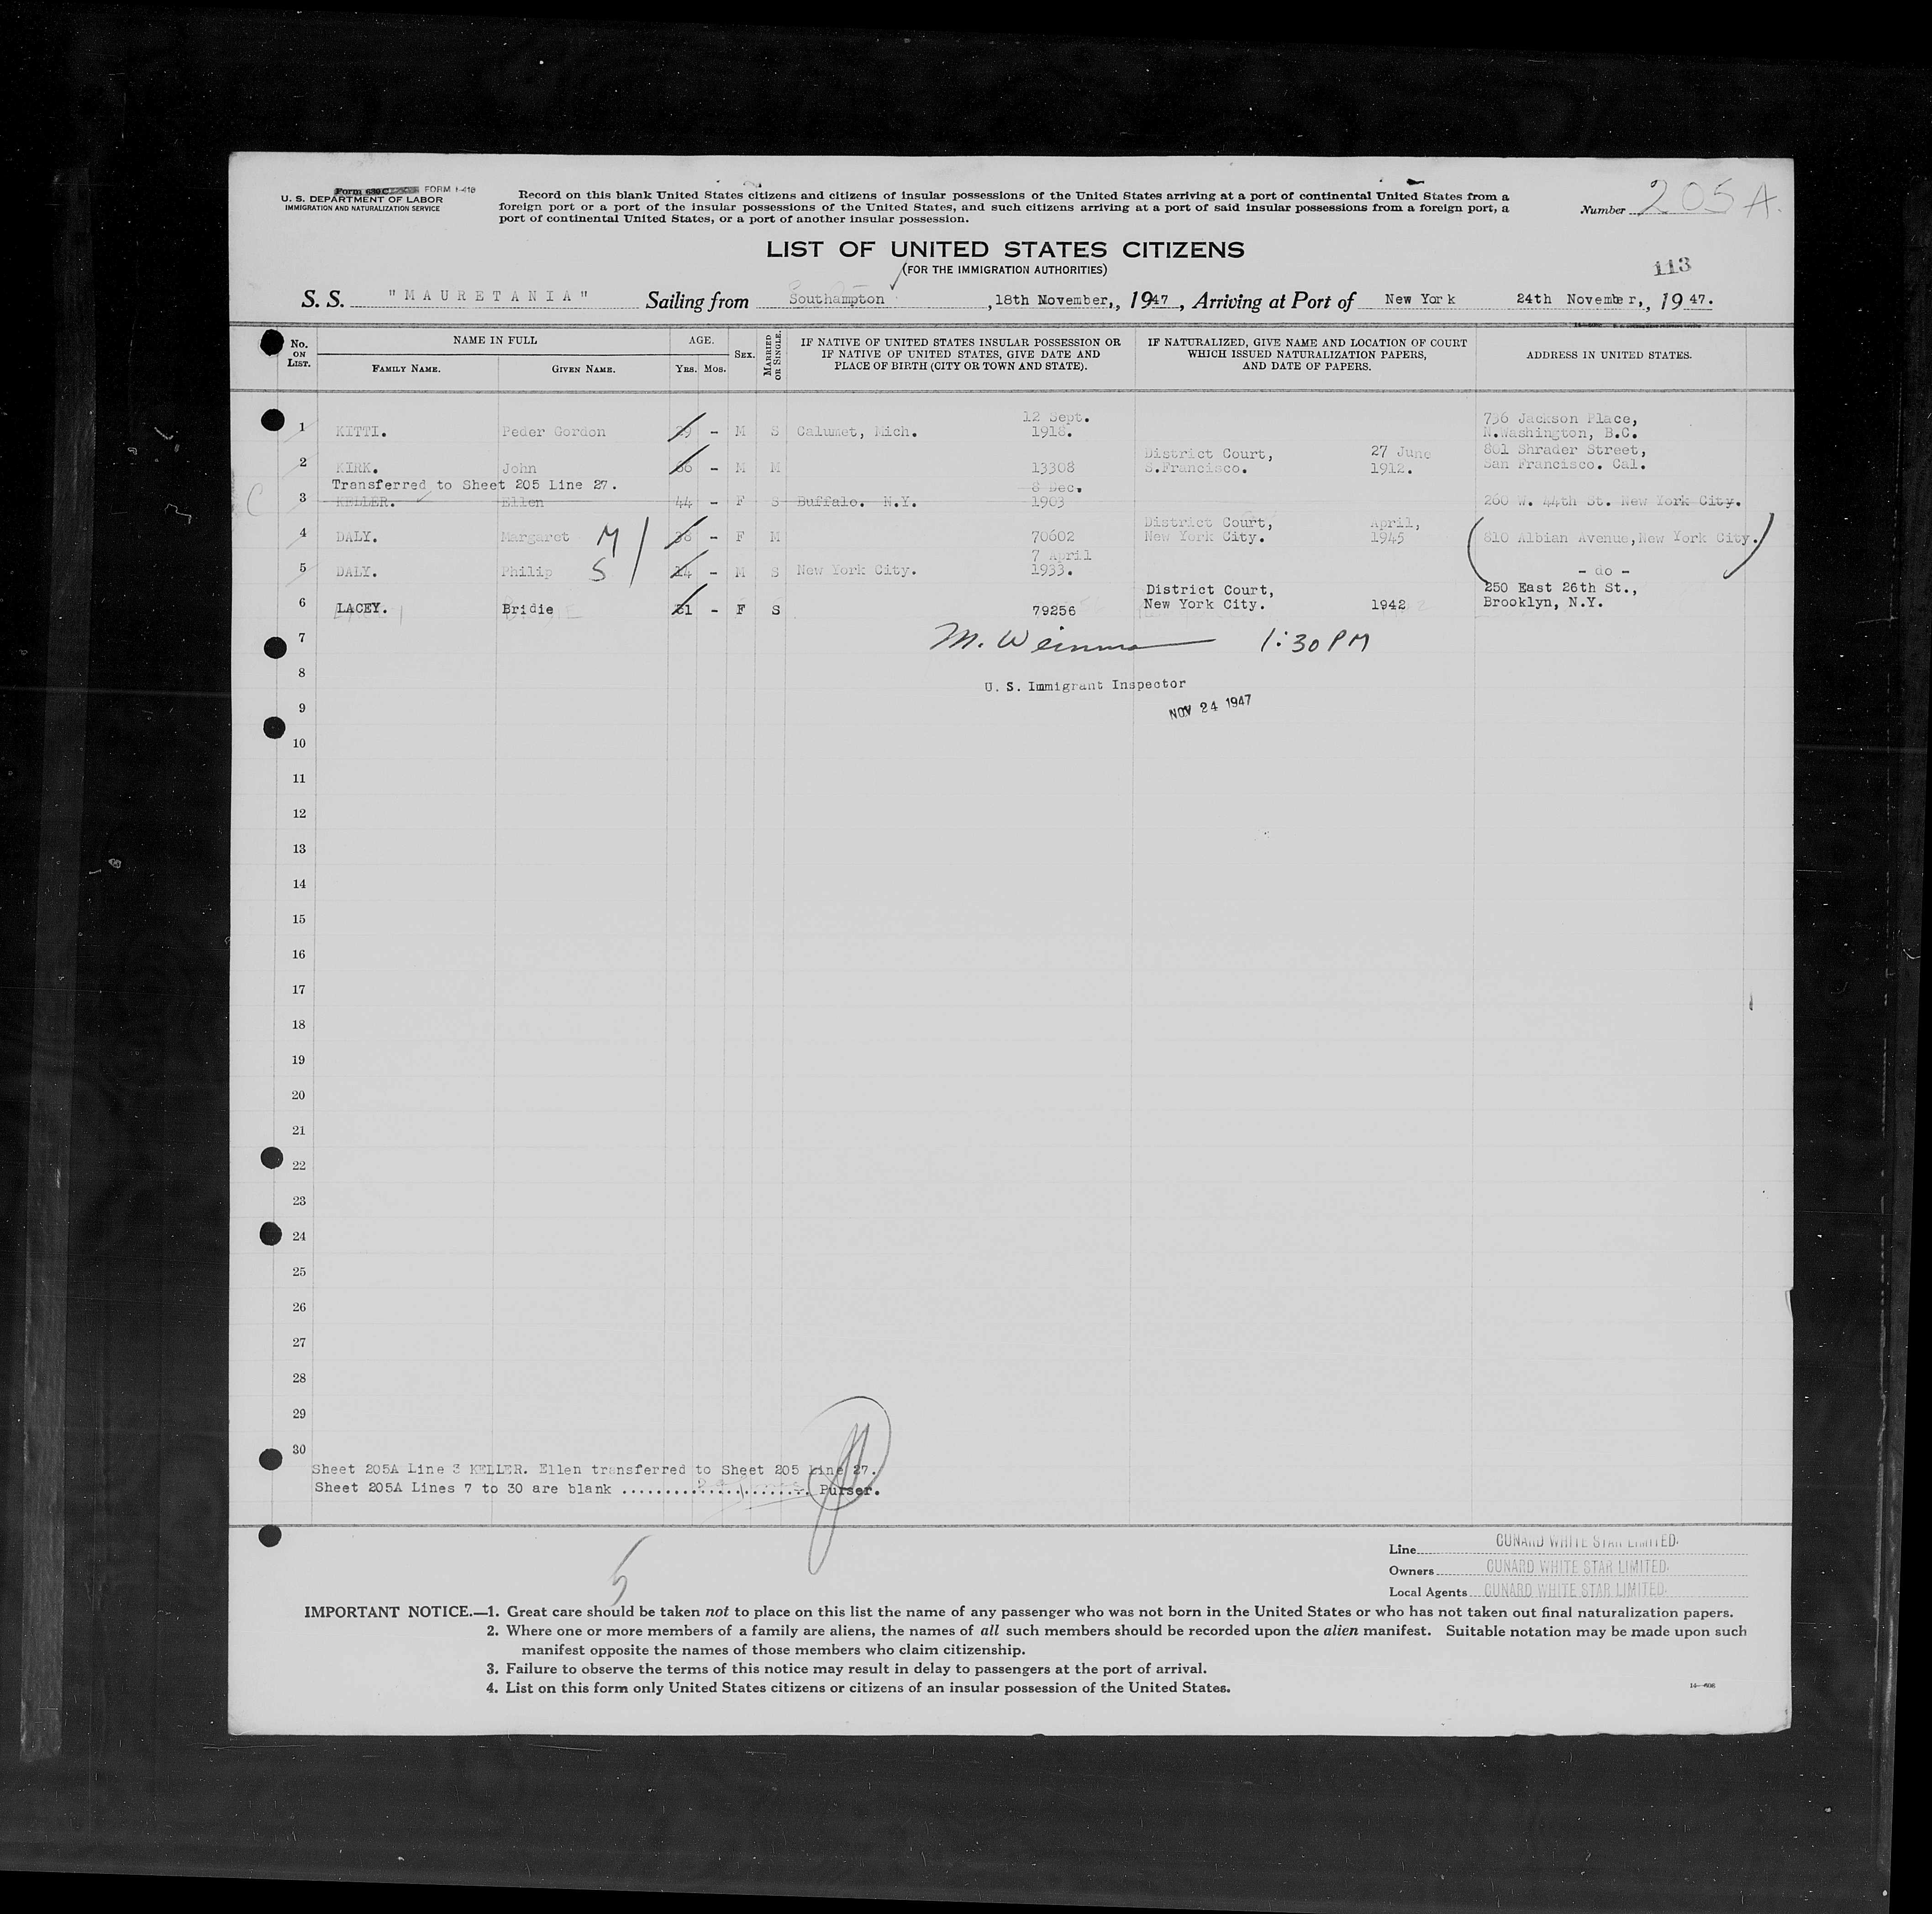 Form 630C FORM I-418
U. S. DEPARTMENT OF LABOR
IMMIGRATION AND NATURALIZATION SERVICE
Record on this blank United States citizens and citizens of insular possessions of the United States arriving at a port of continental United States from a
foreign port or a port of the insular possessions of the United States, and such citizens arriving at a port of said insular possessions from a foreign port, a
port of continental United States, or a port of another insular possession.
Number 205 A.
LIST OF UNITED STATES CITIZENS
(FOR THE IMMIGRATION AUTHORITIES)
113
S. S. "MAURETANIA" Sailing from Southampton, 18th November,, 1947, Arriving at Port of New York 24th November,, 1947.
No. ON LIST. NAME IN FULL AGE. SEX. MARRIED OR SINGLE. IF NATIVE OF UNITED STATES INSULAR POSSESSION OR IF NATIVE OF UNITED STATES, GIVE DATE AND PLACE OF BIRTH (CITY OR TOWN AND STATE). IF NATURALIZED, GIVE NAME AND LOCATION OF COURT WHICH ISSUED NATURALIZATION PAPERS, AND DATE OF PAPERS. ADDRESS IN UNITED STATES.
FAMILY NAME. GIVEN NAME. YRS. MOS.
12 Sept. 736 Jackson Place,
1 KITTI. Peder Gordon 29 - M S Calumet, Mich. 1918. N.Washington, B.C.
District Court, 27 June 801 Shrader Street,
2 KIRK. John 66 - M M 13308 S.Francisco. 1912. San Francisco. Cal.
Transferred to Sheet 205 Line 27. 8 Dec.
3 KELLER. Ellen 44 - F S Buffalo. N.Y. 1903 260 W. 44th St. New York City.
C
District Court, April,
4 DALY. Margaret M 38 - F M 70602 New York City. 1945 (810 Albian Avenue, New York City.)
7 April
5 DALY. Philip S 14 - M S New York City. 1933. - do -
District Court, 250 East 26th St.,
6 LACEY. Bridie 31 - F S 79256 New York City. 1942 Brooklyn, N.Y.
7
M. 1:30 PM
8
U. S. Immigrant Inspector
9
NOV 24 1947
10
11
12
13
14
15
16
17
18
19
20
21
22
23
24
25
26
27
28
29
30
Sheet 205A Line 3 KELLER. Ellen transferred to Sheet 205 Line 27.
Sheet 205A Lines 7 to 30 are blank ...................... Purser.
5
Line CUNARD WHITE STAR LIMITED.
Owners CUNARD WHITE STAR LIMITED.
Local Agents CUNARD WHITE STAR LIMITED.
IMPORTANT NOTICE.—1. Great care should be taken not to place on this list the name of any passenger who was not born in the United States or who has not taken out final naturalization papers.
2. Where one or more members of a family are aliens, the names of all such members should be recorded upon the alien manifest. Suitable notation may be made upon such
manifest opposite the names of those members who claim citizenship.
3. Failure to observe the terms of this notice may result in delay to passengers at the port of arrival.
4. List on this form only United States citizens or citizens of an insular possession of the United States.